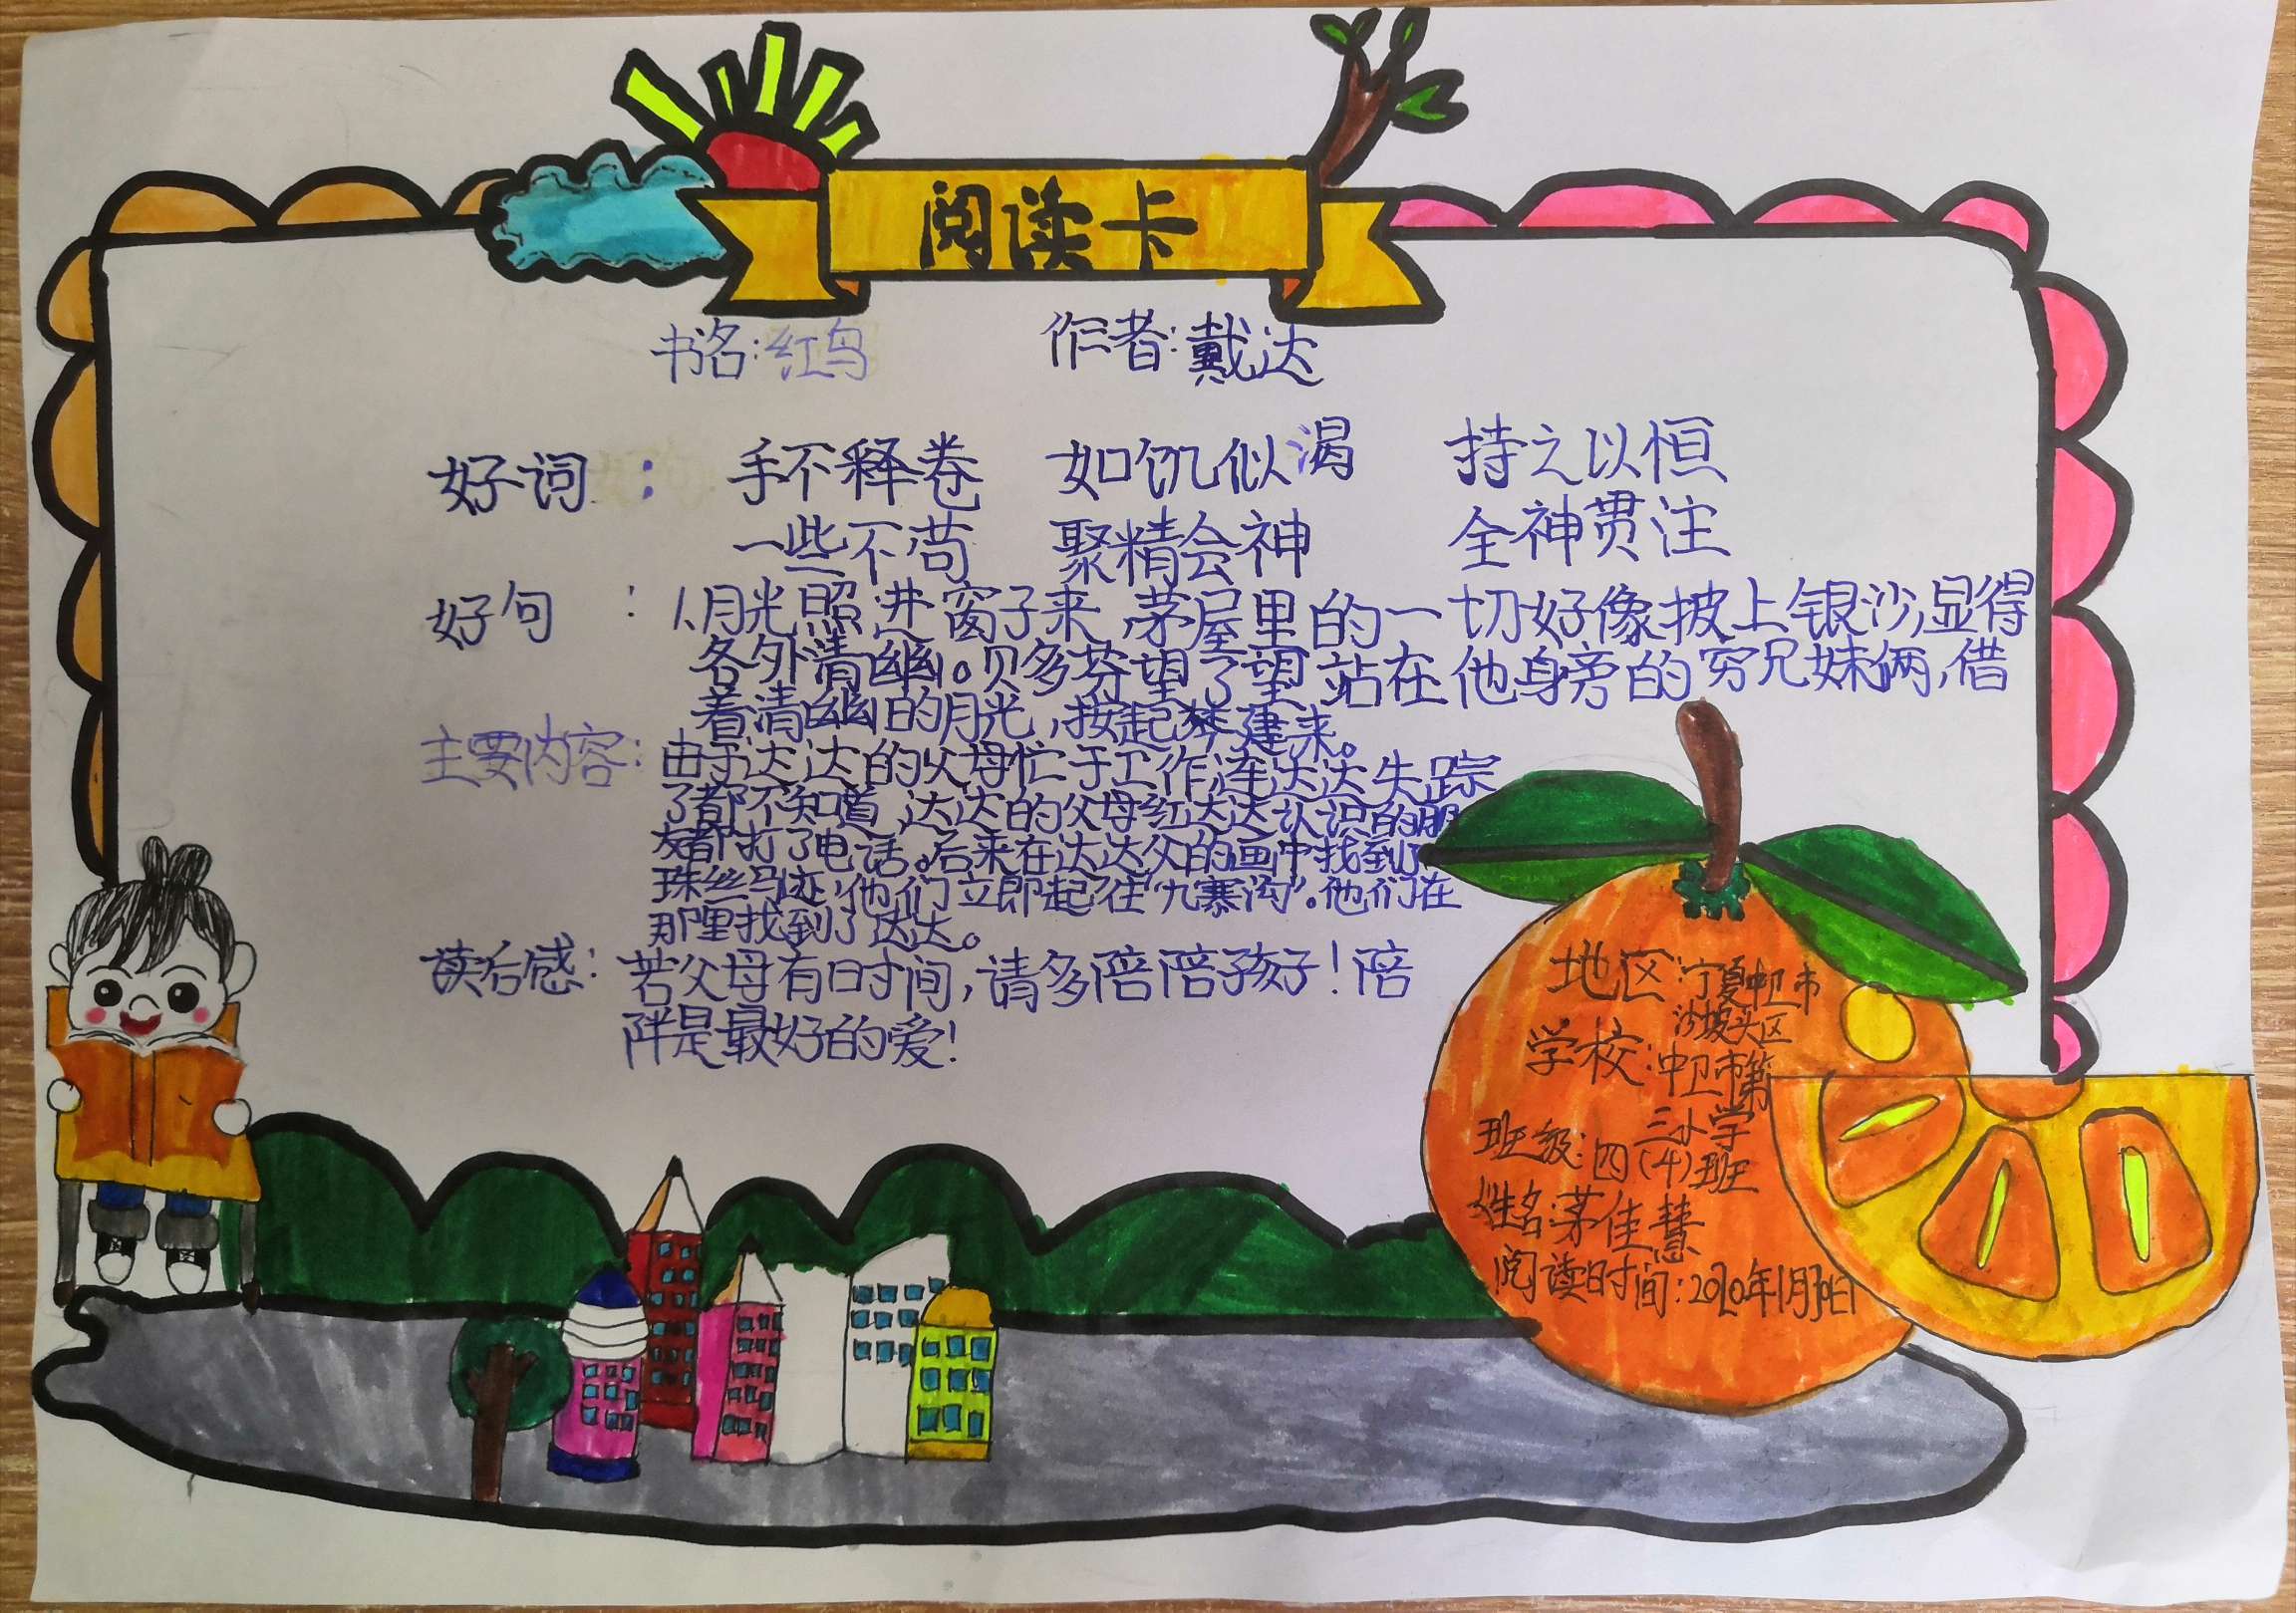 阅读卡
书名:红鸟 作者:戴达
好词: 手不释卷 如饥似渴 持之以恒
一些不苟 聚精会神 全神贯注
好句:1.月光照进窗子来,茅屋里的一切好像披上银沙,显得
各外清幽。贝多芬望了望站在他身旁的穷兄妹俩,借
着清幽的月光,按起琴建来。
主要内容:由于达达的父母忙于工作,连达达失踪
了都不知道,达达的父母红达达认识的朋
友都打了电话。后来在达达父的画中找到了
珠丝马迹,他们立即起了往“九寨沟”。他们在
那里找到了达达。
读后感:若父母有时间,请多陪陪孩好!陪
陪是最好的爱!
地区:宁夏中卫市
沙坡头区
学校:中卫市第
三小学
班级:四(4)班
姓名:茅佳慧
阅读时间:2020年1月30日